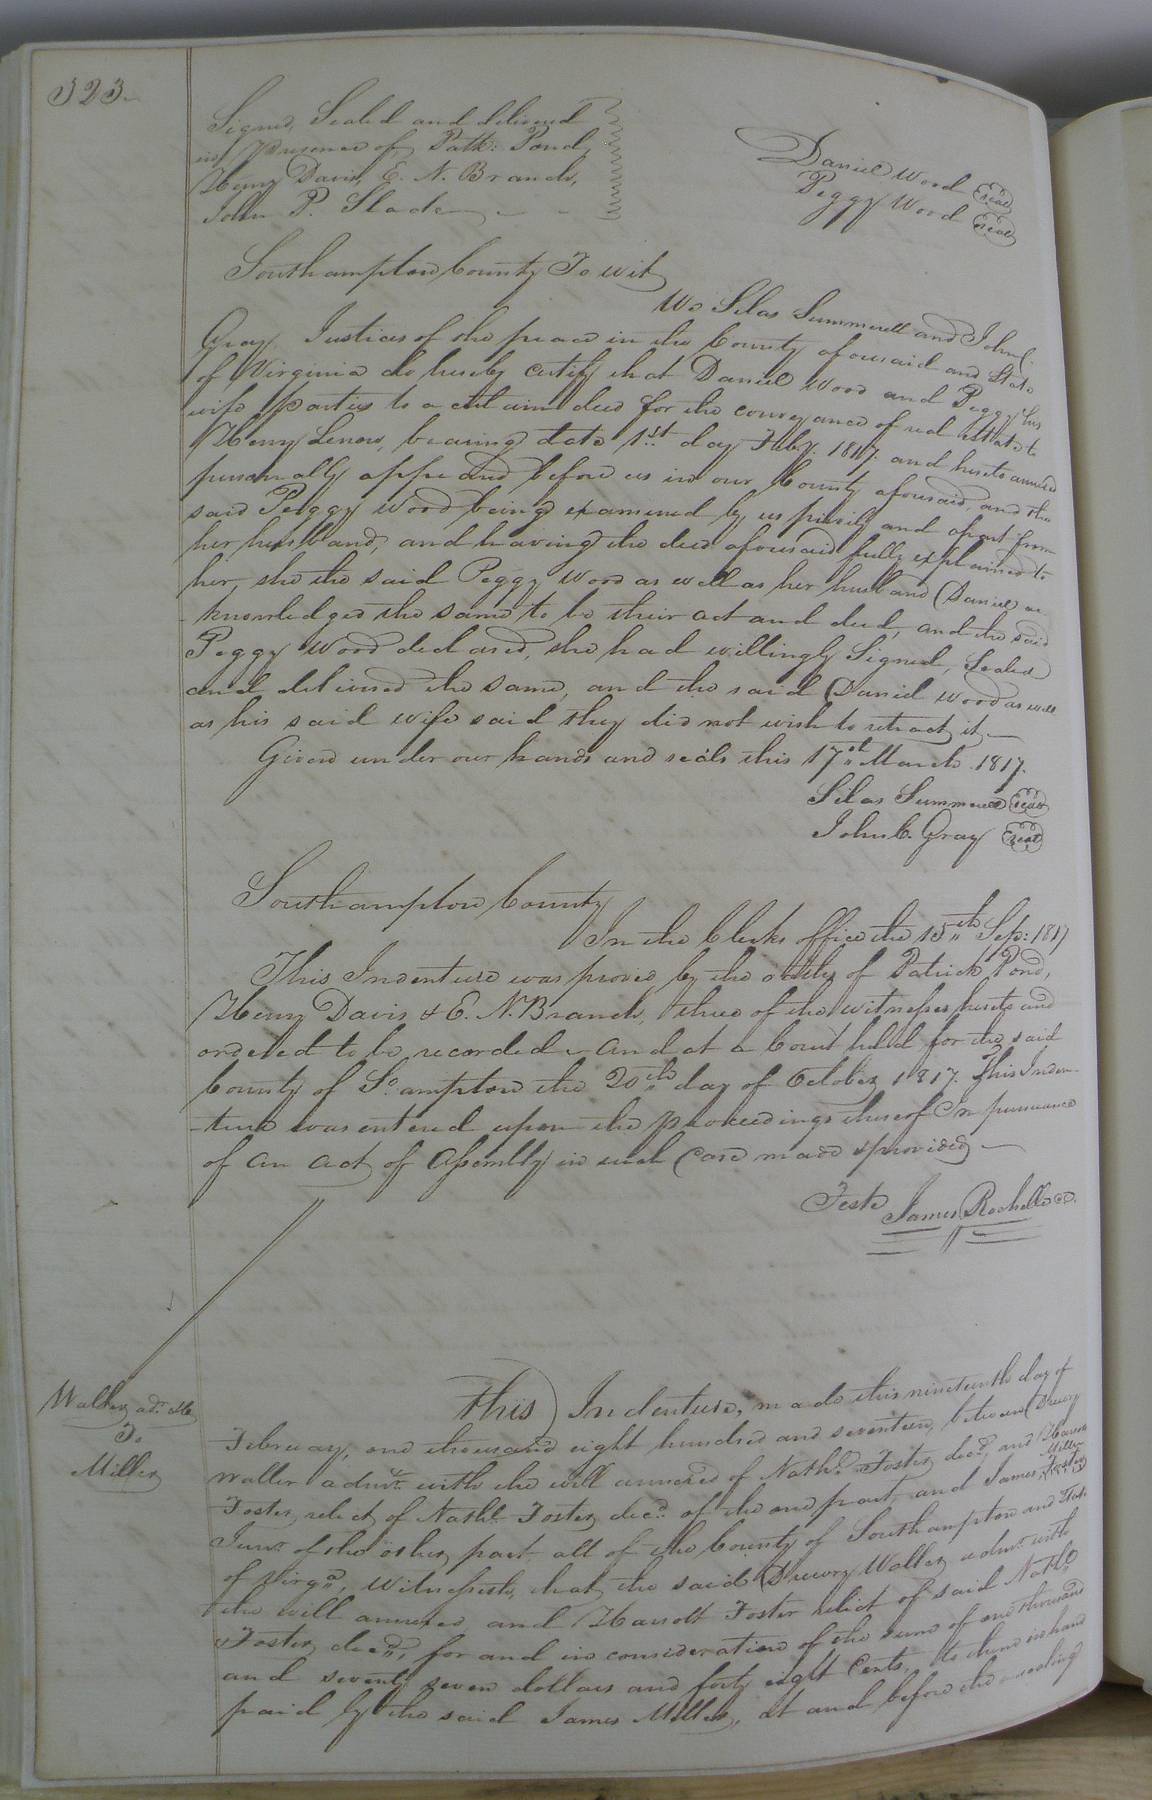 323
Signed, Sealed and delivered
in presence of, Patk: Pond,
Henry Davis, E. N. Branch,
John P. Slade
Daniel Wood Seal
Peggy Wood Seal
Southampton County To wit
We Silas Summerell and John C.
Gray Justices of the peace in the County aforesaid and State
of Virginia do hereby certify that Daniel Wood and Peggy his
wife parties to a certain deed for the conveyance of real estate to
Henry Lenow, bearing date 1st day Feby. 1817. and hereto annexed
personally appeared before us in our County aforesaid, and the
said Peggy Wood being examined by us privily and apart from
her husband, and having the deed aforesaid fully explained to
her, she the said Peggy Wood as well as her husband Daniel ac
-knowledged the same to be their act and deed, and the said
Peggy Wood declared, she had willingly Signed, Sealed
and delivered the same, and the said Daniel Wood as well
as his said wife said they did not wish to retract it
Given under our hands and seals this 17th March 1817.
Silas Summerell Seal
John C. Gray Seal
Southampton County
In the Clerks office the 15th Sep: 1817
This Indenture was proved by the oaths of Patrick Pond,
Henry Davis & E. N. Branch, three of the witnesses hereto and
ordered to be recorded and at a Court held for the said
County of So.ampton the 20th day of October 1817. This Inden-
-ture was entered upon the proceedings thereof In pursuance
of an act of Assembly in such case made & provided
Teste James Rochelle
Waller adr. &c
To
Miller
This Indenture, made this nineteenth day of
February, one thousand eight hundred and seventeen, between Drewry
Waller admr. with the will annexed of Nathl. Foster decd, and Harrott
Miller
Foster, relict of Nathl. Foster decd. of the one part, and James Foster
Junr. of the other part all of the County of Southampton and State
of Virga, Witnesseth, that the said Drewry Waller admr. with
the will annexed and Harrott Foster relict of said Nathl.
Foster decd, for and in consideration of the sum of one thousand
and seventy seven dollars and forty eight cents, to them in hand
paid by the said James Miller, at and before the ensealing